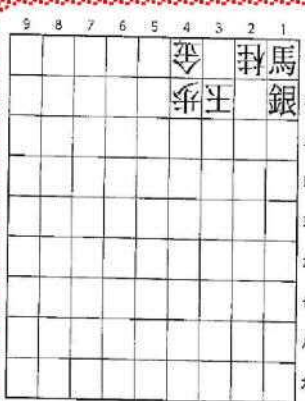 9 8 7 6 5 4 3 2 1
金 桂 馬
歩 玉 銀